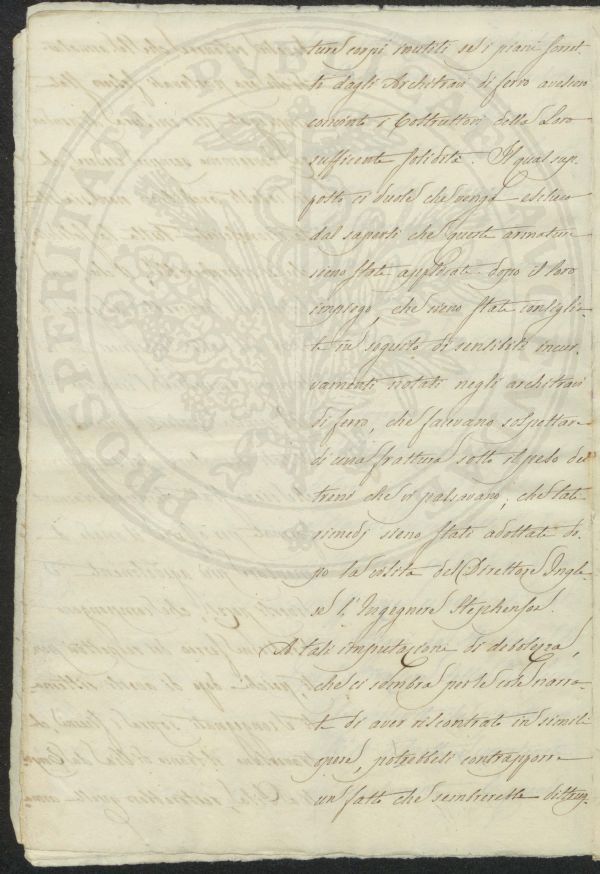 ture corpi inutili se i piani sorret-
ti dagli Architravi di ferro avessero
convinto i Costruttori della Loro
sufficente solidità. Il qual sup-
posto ci duole che venga escluso
dal sapersi che queste armature
sieno state applicate dopo il loro
impiego, che sieno state consiglia-
te in seguito di sensibili incur-
vamenti notati negli architravi
di ferro, che facevano sospettare
di una frattura sotto il peso dei
treni che vi passavano; che tali
rimedj sieno stati adottati do-
po la visita del Direttore Ingle-
se l'Ingegnere Stephenson.
A tali imputazione di debolezza,
che ci sembra per le cose narra-
te di aver riscontrato in simili
opere, potrebbesi contrapporre
un fatto che sembrerebbe distrug-
PROSPERITATI PUBLICAE